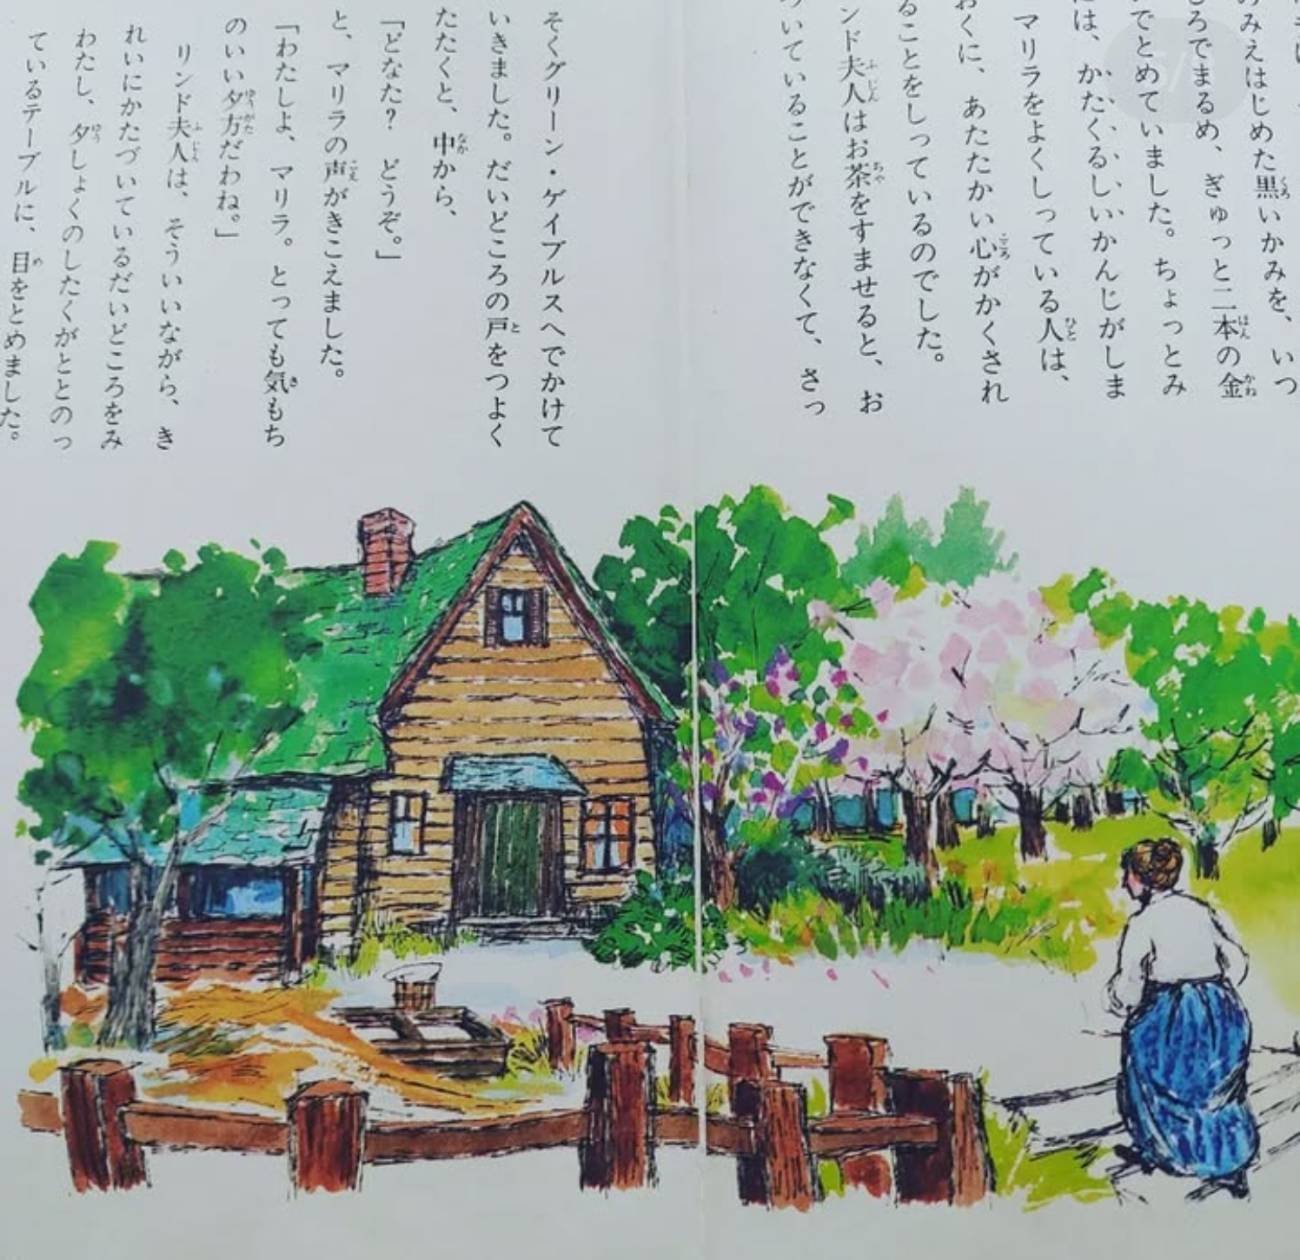 みえはじめた黒いかみを、いつ
ろでまるめ、ぎゅっと二本の金
でとめていました。ちょっとみ
は、かたくるしいかんじがしま
マリラをよくしっている人は、
おくに、あたたかい心がかくされ
ることをしっているのでした。
ンド夫人はお茶をすませると、お
いていることができなくて、さっ
そくグリーン・ゲイブルスへでかけて
いきました。だいどころの戸をつよく
たたくと、中から、
「どなた？　どうぞ。」
と、マリラの声がきこえました。
「わたしよ、マリラ。とっても気もち
のいい夕方だわね。」
リンド夫人は、そういいながら、き
れいにかたづいているだいどころをみ
わたし、夕しょくのしたくがととのっ
ているテーブルに、目をとめました。